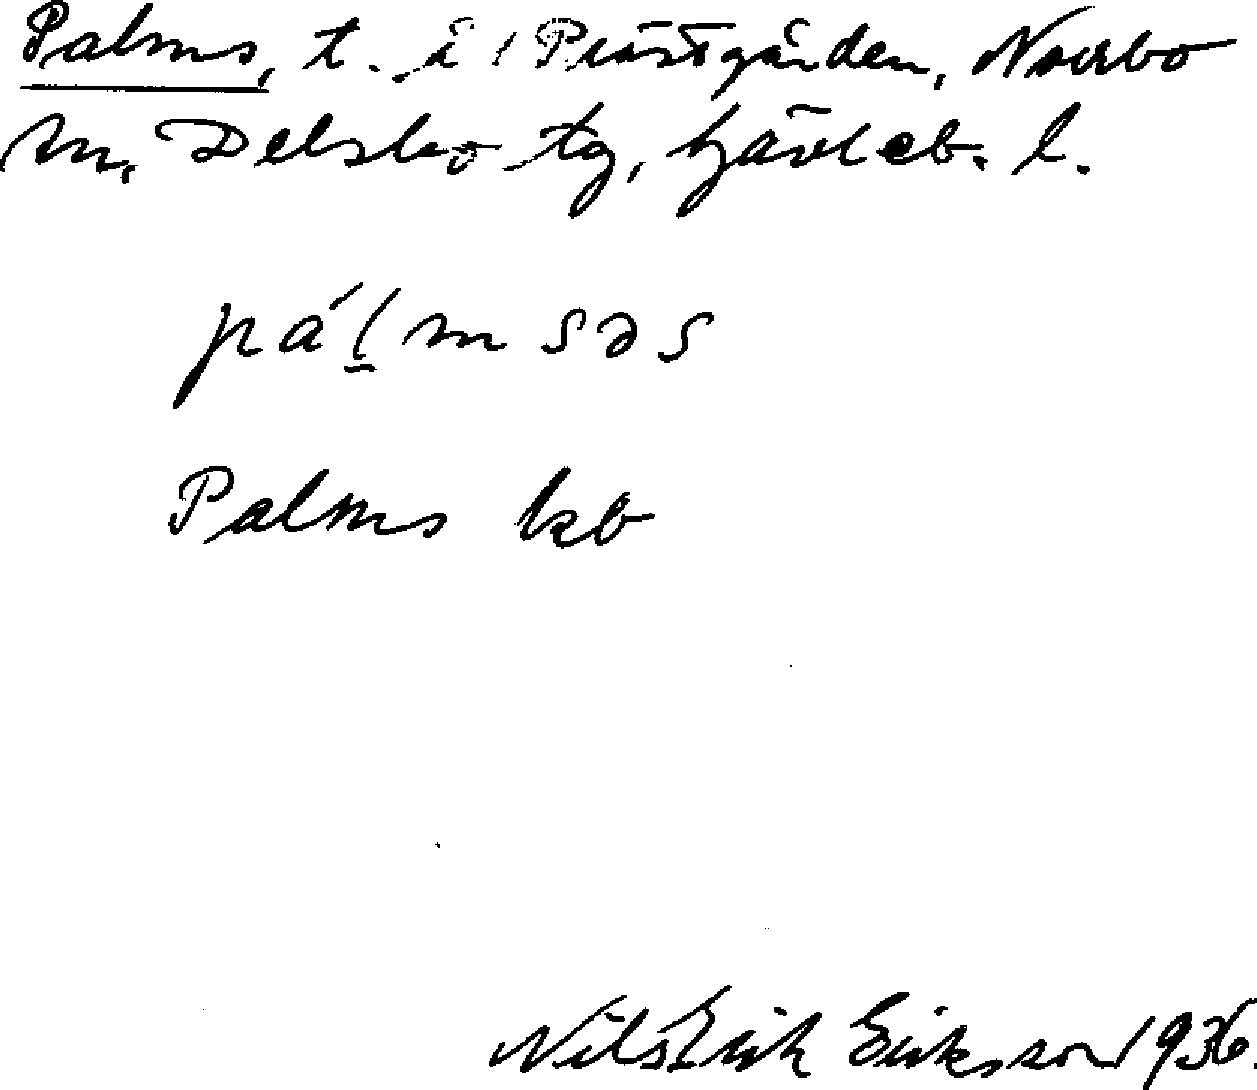 Palms, t. å / Prästgården, Norrbo
sn, Delsbo tg, Gävleb. l.
pál̠msəs
Palms kb
Nils Erik Eriksson 1936.